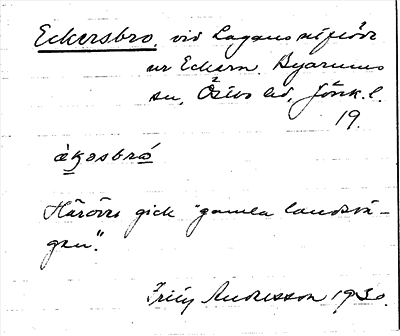 Eckersbro, vid Lagans utflöde
ur Eckern. Byarums
sn, Östbo hd, Jönk. l.
19.
ǝ̀kǝsbrǫ́
Häröver gick "gamla landsvä-
gen".
Fritz Andersson 1930.